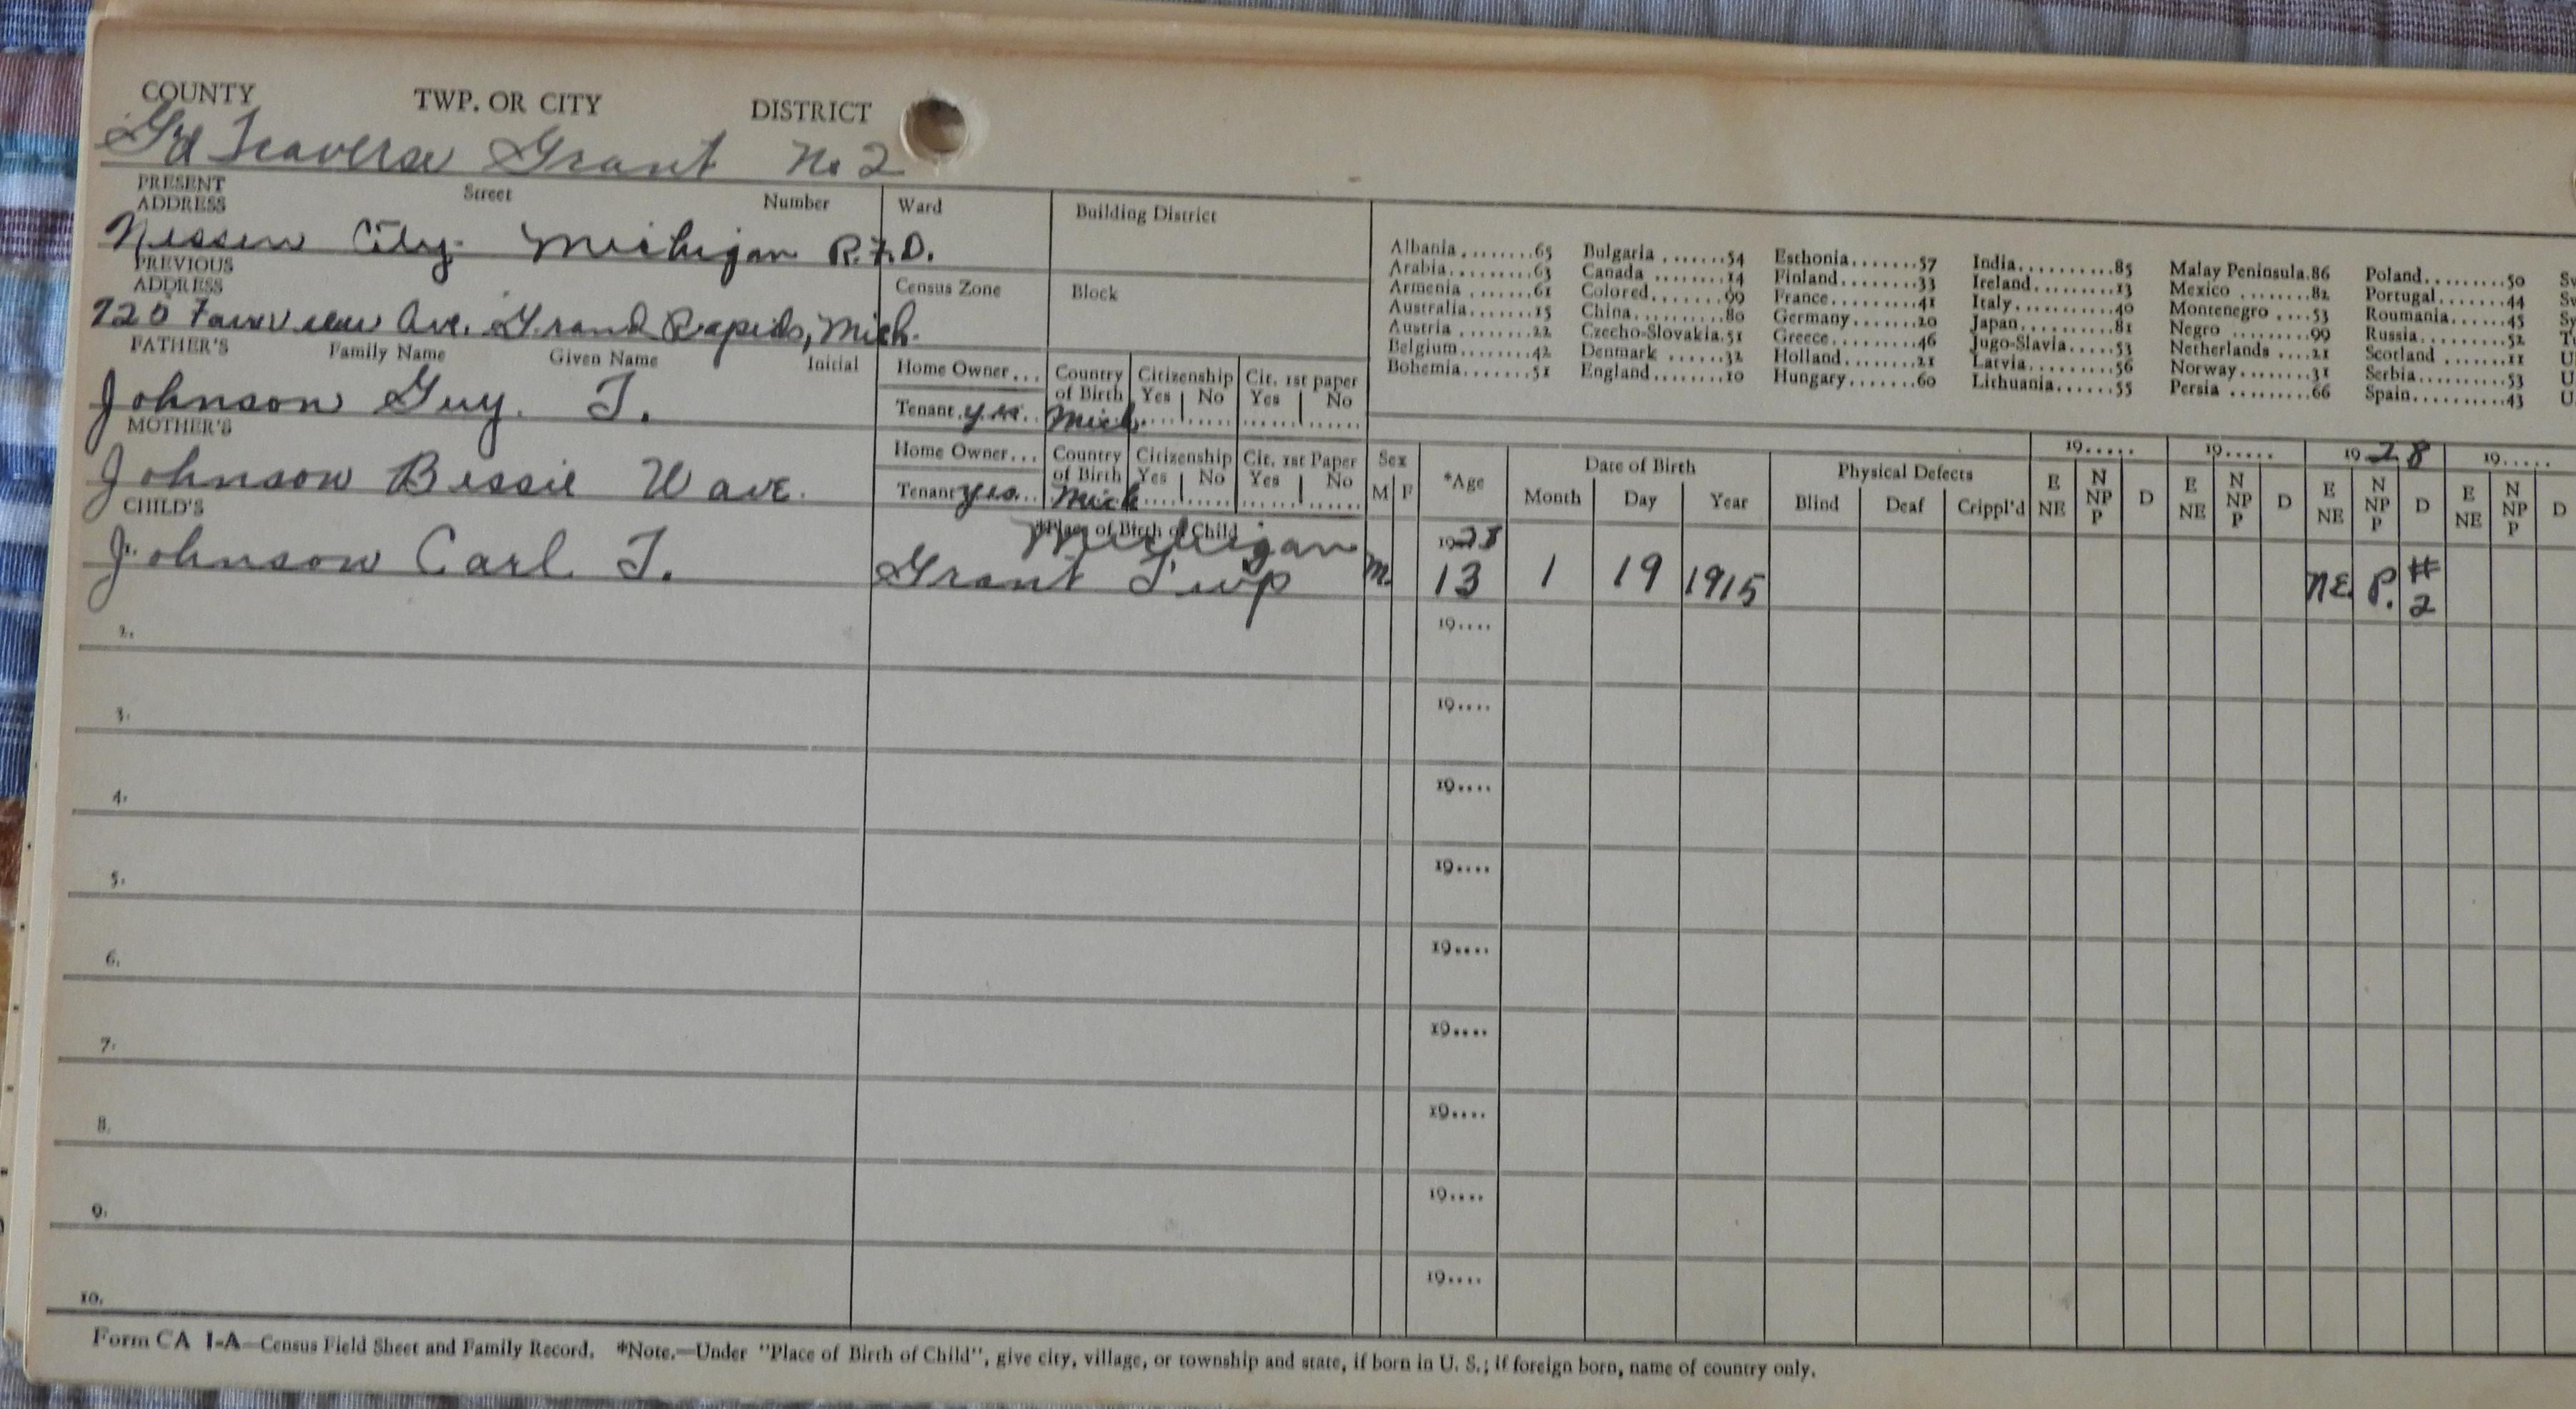 COUNTY TWP. OR CITY DISTRICT
Gd Traverse Grant No 2
PRESENT ADDRESS Street Number Ward Building District
Nessen City Michigan R.F.D.
PREVIOUS ADDRESS Census Zone Block
720 Fairview Ave. Grand Rapids, Mich.
FATHER'S Family Name Given Name Initial Home Owner... Country of Birth Citizenship Yes No Cit. 1st paper Yes No
Johnson Guy. T. Tenant.yes.. Mich.
MOTHER'S Home Owner... Country of Birth Citizenship Yes No Cit. 1st Paper Yes No
Johnson Bessie Wave. Tenant yes... Mich
Albania........65 Bulgaria.......54 Esthonia.......57 India..........85 Malay Peninsula.86 Poland.........50
Arabia.........63 Canada ........14 Finland........33 Ireland........13 Mexico ........82 Portugal.......44
Armenia .......61 Colored........99 France.........41 Italy..........40 Montenegro ....53 Roumania......45
Australia......15 China..........80 Germany.......20 Japan..........81 Negro .........99 Russia.........52
Austria .......22 Czecho-Slovakia.51 Greece.........46 Jugo-Slavia.....53 Netherlands ....21 Scotland .......11
Belgium........42 Denmark ......32 Holland........21 Latvia.........56 Norway........31 Serbia.........53
Bohemia.......51 England........10 Hungary.......60 Lithuania......55 Persia .........66 Spain..........43
Sex M F *Age Date of Birth Month Day Year Physical Defects Blind Deaf Crippl'd
19..... 19..... 19 28 19.....
E NE N NP P D E NE N NP P D E NE N NP P D E NE N NP P D
CHILD'S *Place of Birth of Child
Michigan 1928
Johnson Carl T. Grant Twp M 13 1 19 1915 NE. P. # 2
2. 19....
3. 19....
4. 19....
5. 19....
6. 19....
7. 19....
8. 19....
9. 19....
10. 19....
Form CA 1-A—Census Field Sheet and Family Record. *Note.—Under "Place of Birth of Child", give city, village, or township and state, if born in U. S.; if foreign born, name of country only.